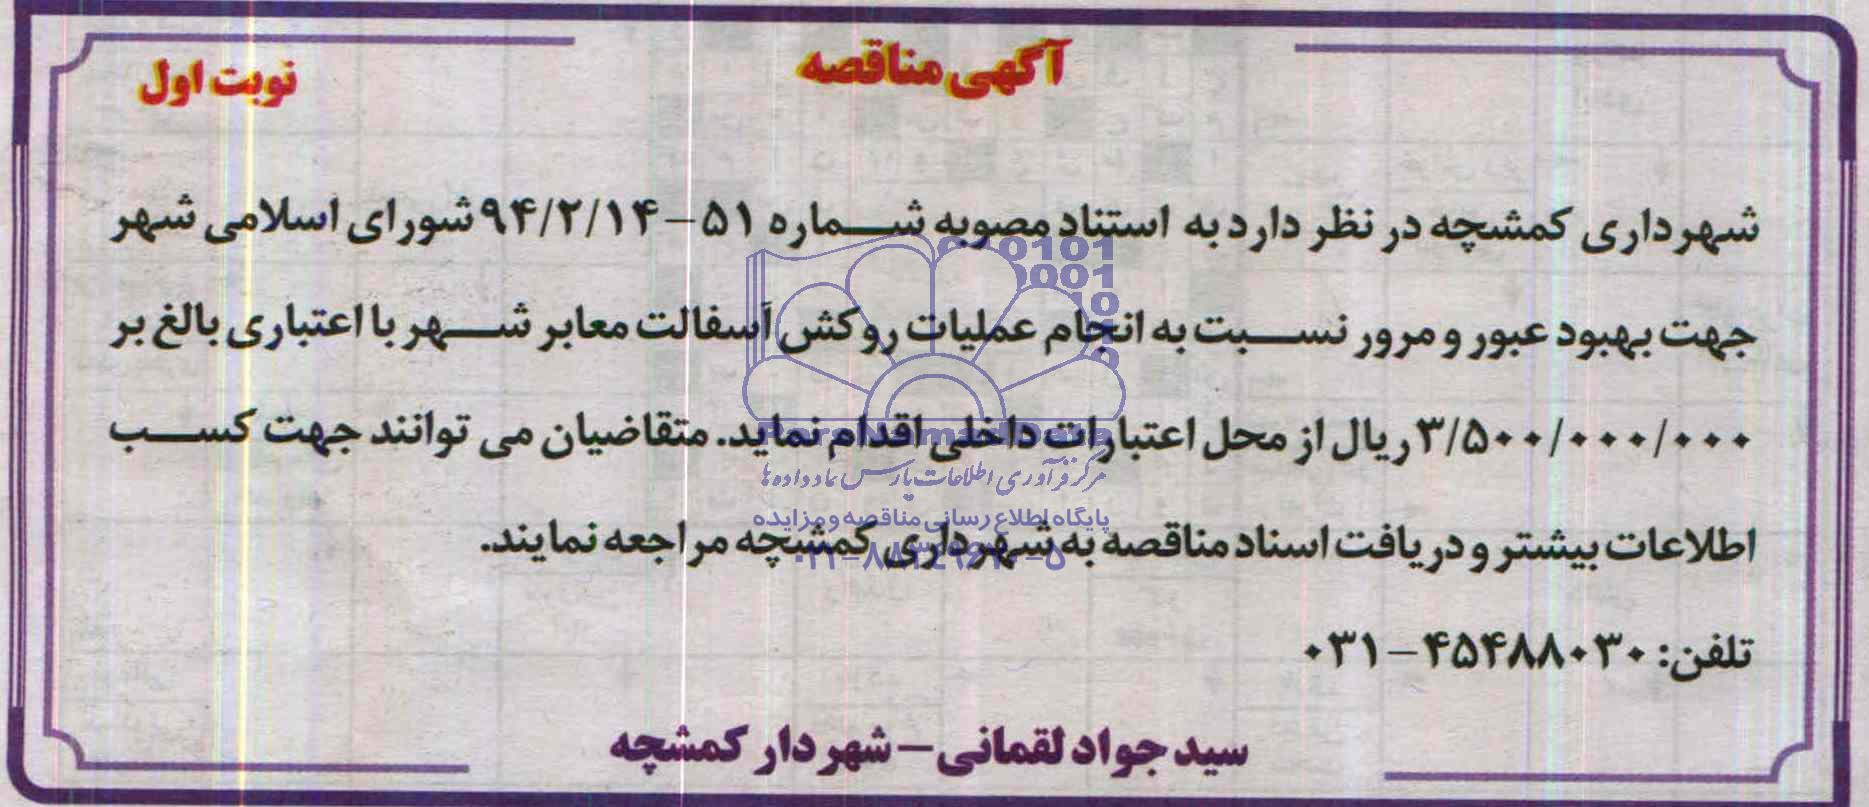 آگهی مناقصه
نوبت اول
شهرداری کمشچه در نظر دارد به استناد مصوبه شماره ۵۱-۹۴/۲/۱۴ شورای اسلامی شهر
جهت بهبود عبور و مرور نسبت به انجام عملیات روکش آسفالت معابر شهر با اعتباری بالغ بر
۳/۵۰۰/۰۰۰/۰۰۰ ریال از محل اعتبارات داخلی اقدام نماید. متقاضیان می توانند جهت کسب
اطلاعات بیشتر و دریافت اسناد مناقصه به شهرداری کمشچه مراجعه نمایند.
تلفن: ۴۵۴۸۸۰۳۰-۰۳۱
سید جواد لقمانی - شهردار کمشچه
مرکز فرآوری اطلاعات پارس نماد داده ها
پایگاه اطلاع رسانی مناقصه و مزایده